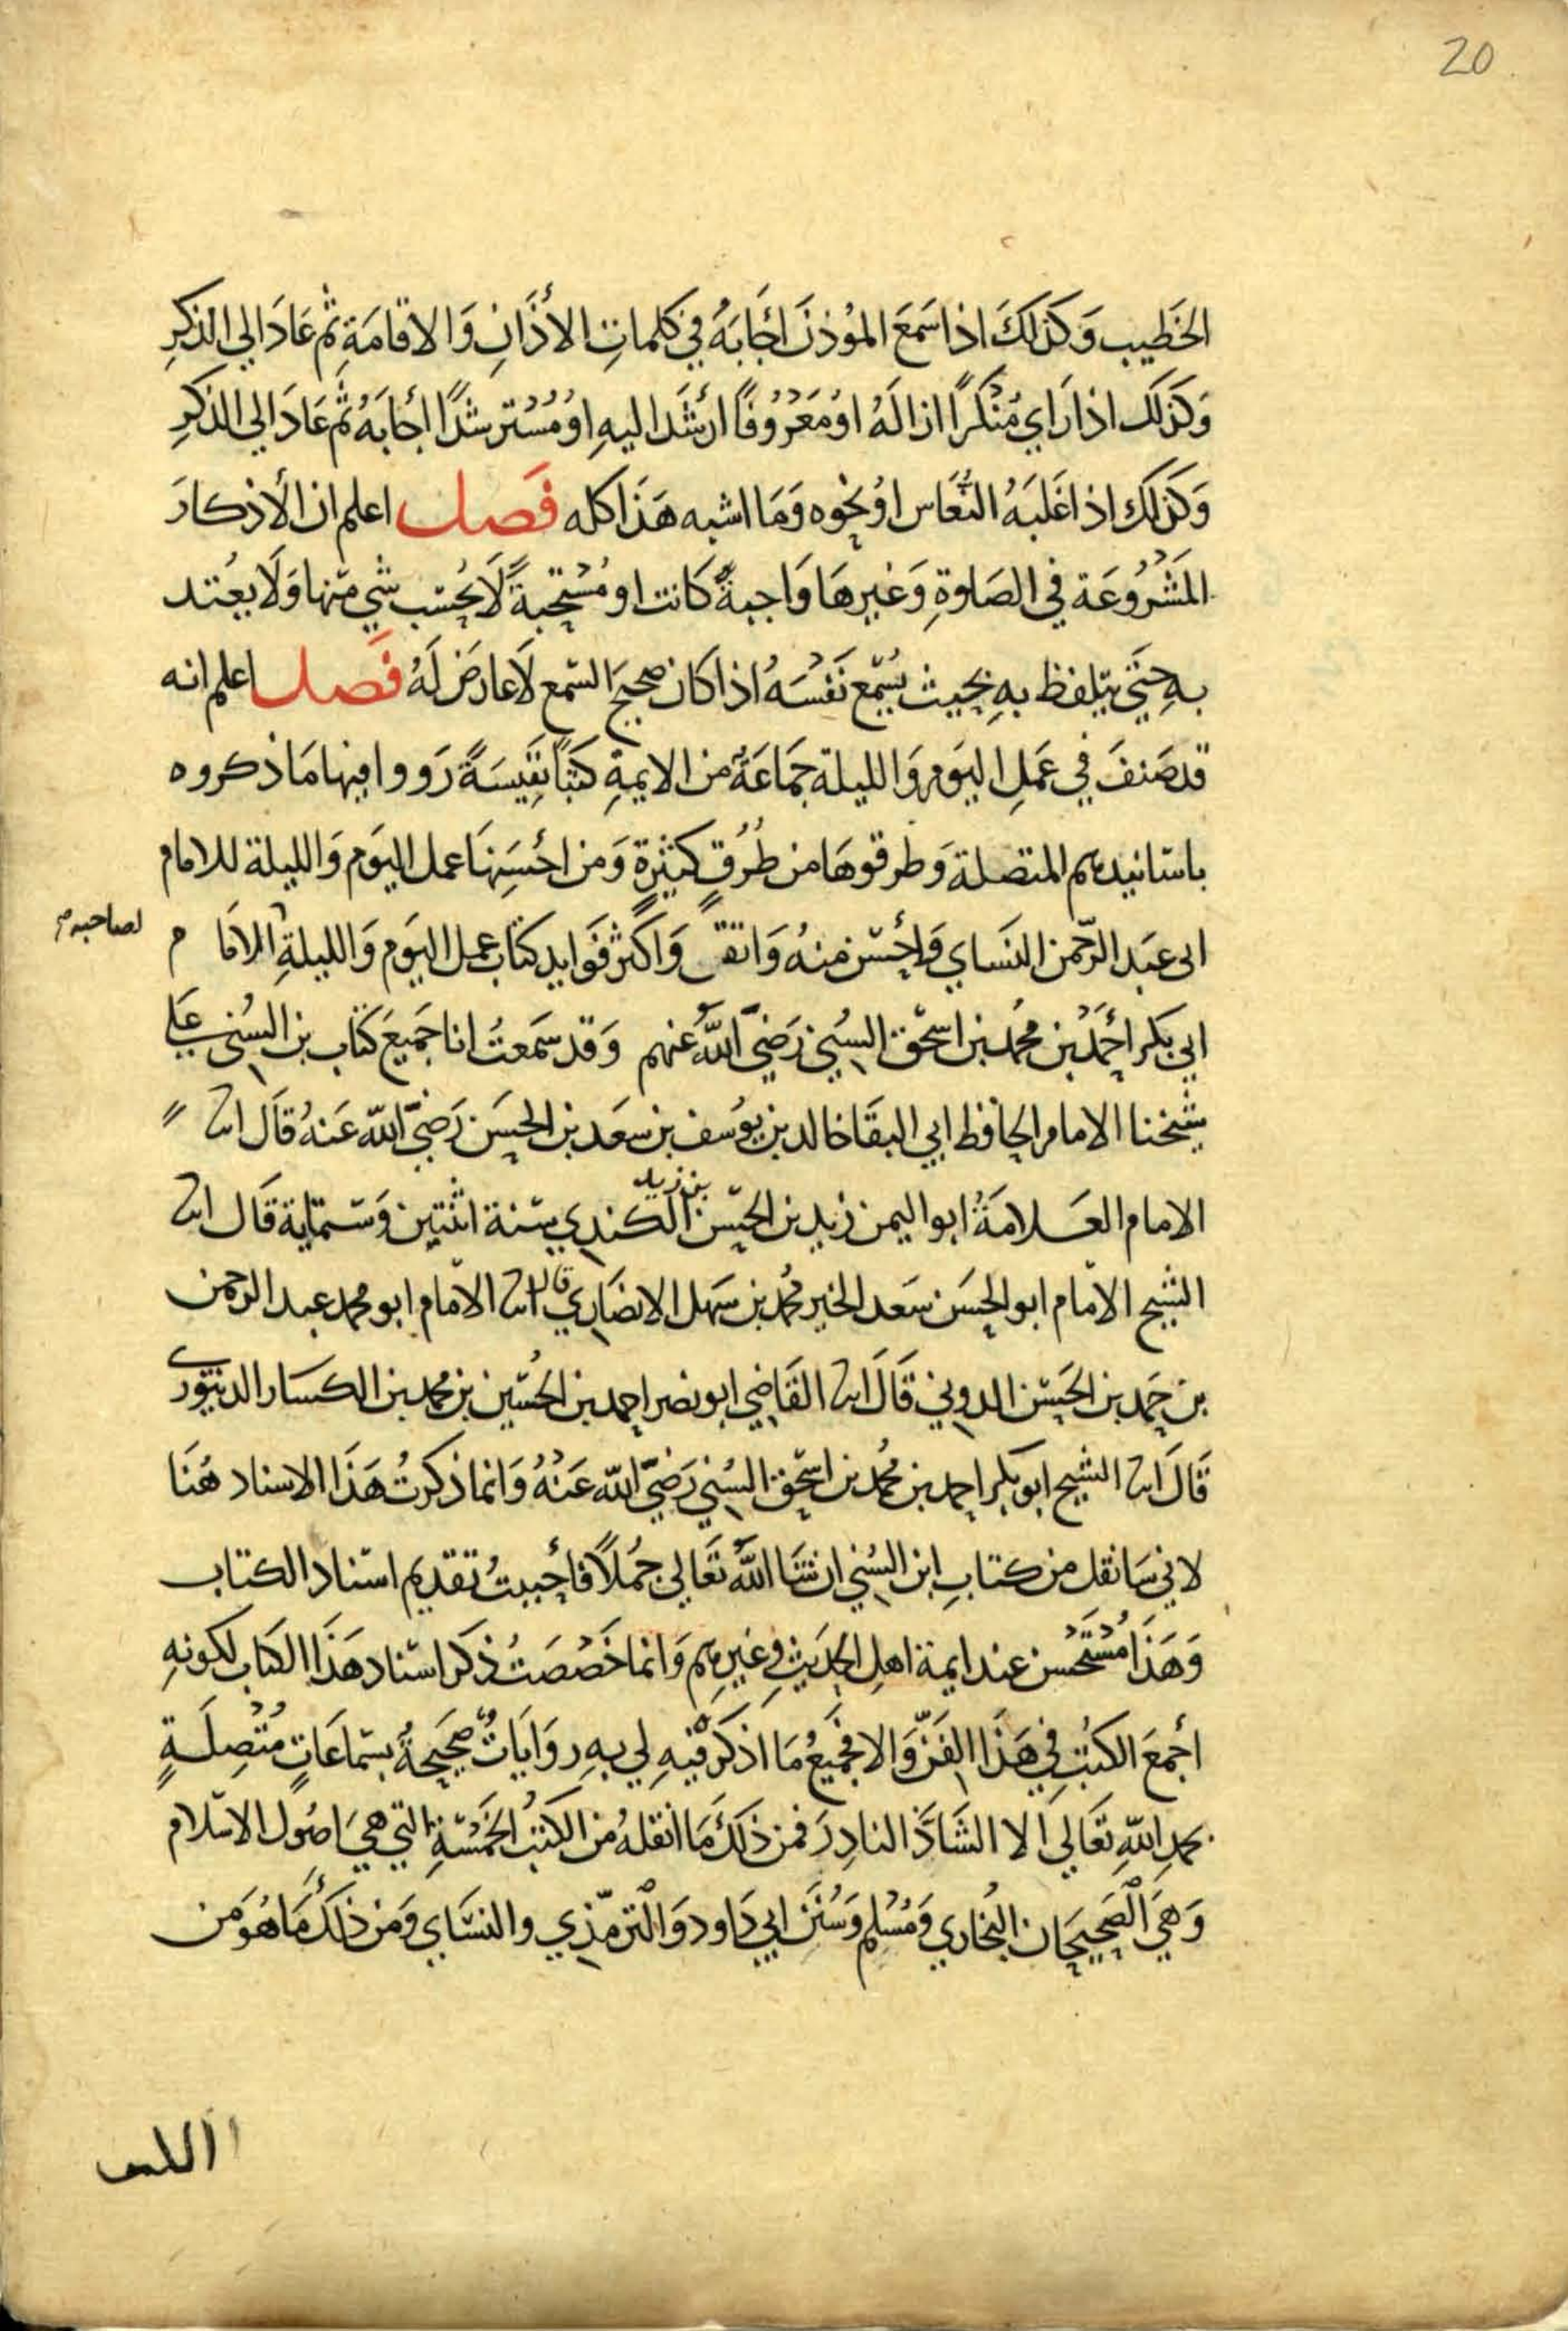 20
الخَطِيب وَكَذلَكَ اذا سَمَعَ المؤذن اجَابَهُ فِي كلمَاتِ الأذَانِ وَالاقامَةِ ثم عَادَ الى الذكرِ
وَكَذلَك اذا رَاي مُنْكَراً ازالَهُ اوْ مَعْرُوفًا ارْشَدَ اليهِ اوْ مُسْترشدًا أجابَهُ ثُم عَادَ الى الذكرِ
وَكَذلَك اذا غَلبَهُ النُّعَاس اوْ نحْوه وَمَا اشبه هَذَا كله فَصل اعلم ان الأذكارَ
المَشْرُوعَة في الصَلوةِ وَغَيرهَا وَاجبةً كَانت او مُسْتَحبةً لَا يُحسَب شي منهَا وَلَا يعُتد
بهِ حَتي يتلفظ بهِ بحيث يُسْمع نَفْسَهُ اذا كان صحيحَ السَمع لَا عارضَ لَهُ فَصل اعلم انه
قد صَنفَ في عَملِ اليَوم وَالليلة جمَاعَة من الايمةِ كتبًا نَفيسَةً رَووا فيها مَا ذكروه
باسَانيدهم المتصلة وَطرقوهَا من طُرُقٍ كثيرةٍ وَمن احْسَنِهَا عمل اليَوم وَالليلة للامام
ابى عَبد الرّحمن النَسَاي وَاحْسَن منهُ وَانفَسَ وَاكثر فَوَايد كتاب عمل اليَوم وَالليلةِ الامَا م
لصاحبه م
ابي بَكر أحْمَدُ بْن محُمد بن اسحق السُني رَضيَ اللهُ عنهم وَقد سَمعتُ انا جَميعَ كتاب بن السُني عَلي
شيخنا الامام الحافظ ابي البقَا خالد بن يوُسف بن سعَد بن الحسَن رَضيَ الله عَنهُ قَال انا
الامام العَلامَةُ ابو اليمن زيد بن الحسَن بن زيد الكندي سَنة اثنتين وَستماية قَال انا
الشيخ الامَام ابو الحسَن سَعد الخير محُمد بن سَهل الانصَاري قال انا الامَام ابو محمد عبد الرحمن
بن حَمد بن الحَسَن الدوني قَالَ انا القَاضي ابو نصر احمد بن الحُسَين بن محمد بن الكسَار الدينوَرى
قَالَ انا الشيخ ابو بكر احمد بن محُمد بن اسحَق السُني رَضيَ الله عَنهُ وَانما ذكرتُ هَذَا الاسناد هُنَا
لاني سَانقل من كتابِ ابن السُني ان شَا اللهُ تَعَالى جمُلاً فأحْببتُ تقديم اسناد الكتاب
وَهَذَا مُسْتَحْسن عند ايمة اهل الحَديثِ وغيرهم وَانما خَصَصتُ ذكر اسنَاد هَذَا الكتاب لكونهِ
أجمعَ الكتُبِ فِي هَذَا الفَنّ وَالا فجَميعُ مَا اذكره فيهِ لي بهِ روَايَاتٌ صَحيحَةُ بسَماعَاتٍ مُتْصِلَةٍ
بحمدِ اللهِ تعَالى الا الشَاذَّ النادِرَ فمن ذلَكَ مَا انقلهُ من الكتبُ الخَمسَةِ التي هيَ اصُول الاسَلام
وَهِيَ الصَحيحَان البُخاري وَمُسْلِم وَسُنَن ابي دَاود وَالترمذي والنسَاي وَمن ذلَكَ مَا هُوَ من